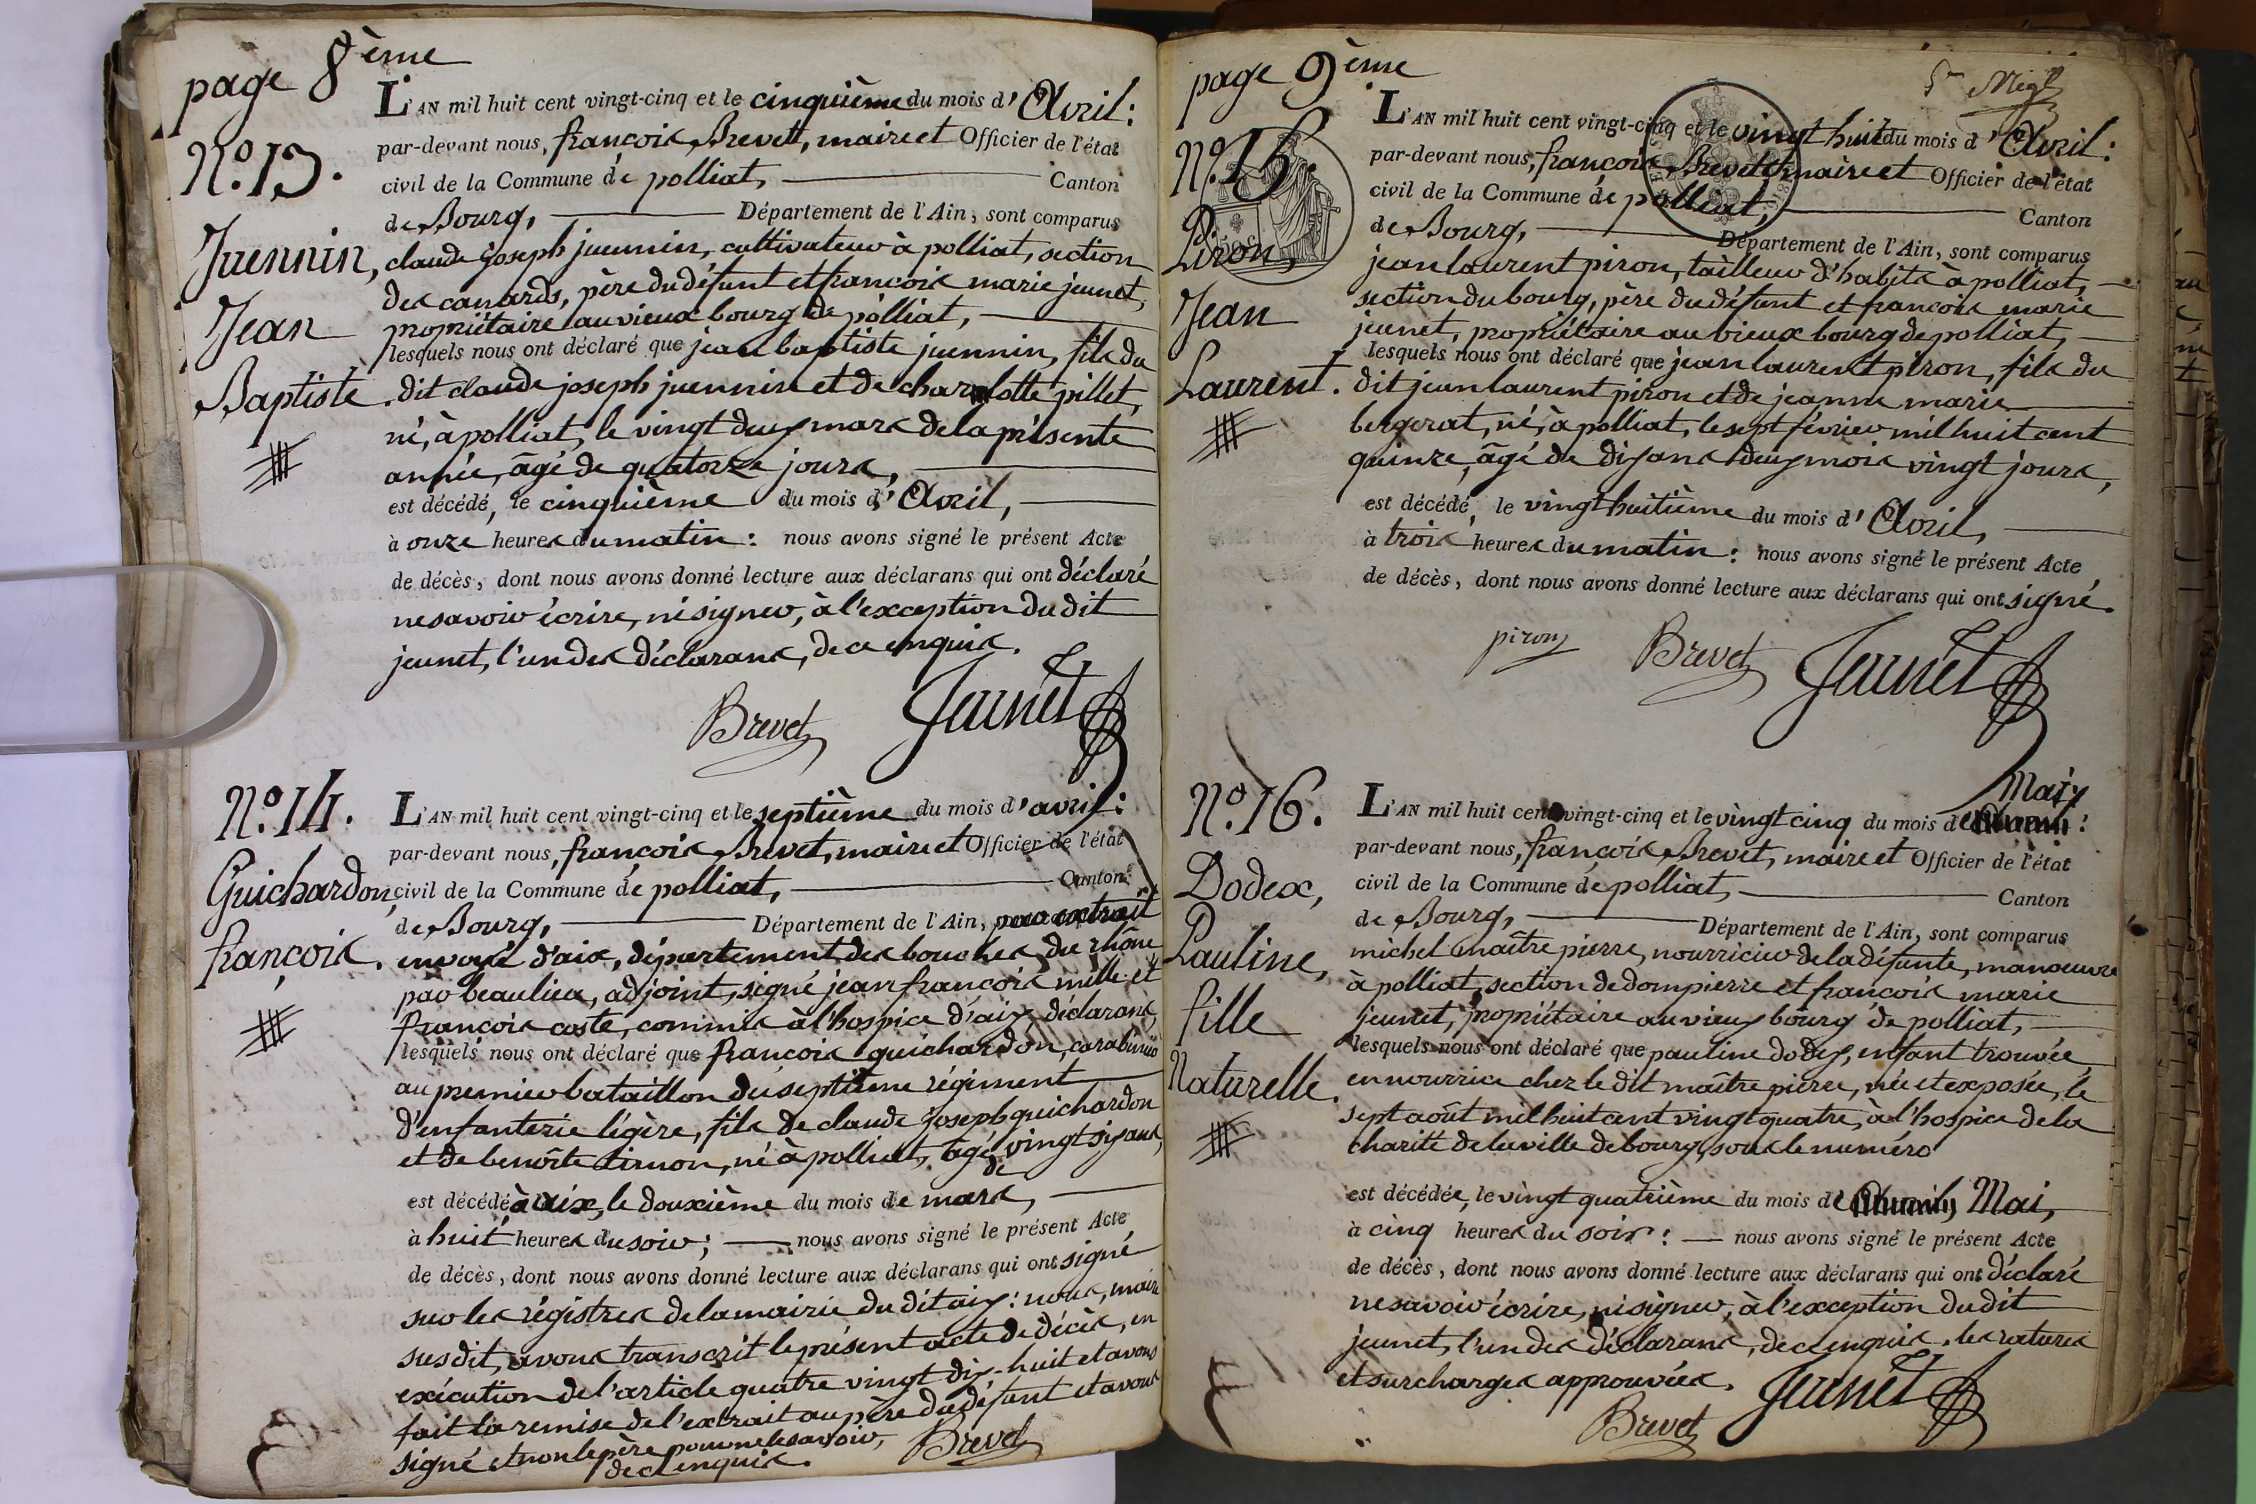 page 8ème
N.º 13.
Juennin,
Jean
Baptiste.
L'AN mil huit cent vingt-cinq et le cinquième du mois d'Avril:
par-devant nous, françois Brevet, maire et Officier de l'état
civil de la Commune de polliat, Canton
de Bourg, Département de l'Ain, sont comparus
claude joseph juennin, cultivateur à polliat, section
des canards, père du défunt et françois marie jeunet,
propriétaire au vieux bourg de polliat,
lesquels nous ont déclaré que jean baptiste juennin, fils du
dit claude joseph juennin et de charlotte pillet,
né, à polliat, le vingt deux mars de la présente
année, âgé de quatorze jours,
est décédé, le cinquième du mois d'Avril,
à onze heures du matin: nous avons signé le présent Acte
de décès, dont nous avons donné lecture aux déclarans qui ont déclaré
ne savoir écrire, ni signer, à l'exception du dit
jeunet, l'un des déclarans, de ce enquis.
Brevet Jeunet
N.º 14.
Guichardon,
françois.
L'AN mil huit cent vingt-cinq et le septième du mois d'avril:
par-devant nous, françois Brevet, maire et Officier de l'état
civil de la Commune de polliat, Canton
de Bourg, Département de l'Ain, par extrait
envoyé d'aix, département des bouches du rhône
par beaulieu, adjoint, signé jean françois mille et
françois coste, commis à l'hospice d'aix, déclarans,
lesquels nous ont déclaré que françois guichardon, carabinier
au premier bataillon du septième régiment
d'enfanterie légère, fils de claude joseph guichardon
et de benoîte tirnon, né à polliat, âgé de vingt six ans,
est décédé à aix, le douxième du mois de mars,
à huit heures du soir; nous avons signé le présent Acte
de décès, dont nous avons donné lecture aux déclarans qui ont signé
sur les régistres de la mairie du dit aix: nous, maire
susdit, avons transcrit le présent acte de décès, en
exécution de l'article quatre vingt dix-huit et avons
fait la remise de l'extrait au père du défunt et avons
signé et non le père pour ne le savoir,
de ce enquis. Brevet
page 9ème
N.º 15.
Piron,
Jean
Laurent.
L'AN mil huit cent vingt-cinq et le vingt huit du mois d'Avril:
par-devant nous, françois Brevet, maire et Officier de l'état
civil de la Commune de polliat, Canton
de Bourg, Département de l'Ain, sont comparus
jean laurent piron, tailleur d'habits à polliat,
section du bourg, père du défunt et françois marie
jeunet, propriétaire au vieux bourg de polliat,
lesquels nous ont déclaré que jean laurent piron, fils du
dit jean laurent piron et de jeanne marie
bergerat, né, à polliat, le sept février mil huit cent
quinze, âgé de dix ans deux mois vingt jours,
est décédé, le vingt huitième du mois d'Avril,
à trois heures du matin: nous avons signé le présent Acte
de décès, dont nous avons donné lecture aux déclarans qui ont signé.
piron Brevet Jeunet
N.º 16.
Dodex,
Pauline,
fille
Naturelle.
Mai,
L'AN mil huit cent vingt-cinq et le vingt cinq du mois d
par-devant nous, françois Brevet, maire et Officier de l'état
civil de la Commune de polliat, Canton
de Bourg, Département de l'Ain, sont comparus
michel maître pierre, nourricier de la défunte, manoeuvre
à polliat, section de dompierre et françois marie
jeunet, propriétaire au vieux bourg de polliat,
lesquels nous ont déclaré que pauline dodex, enfant trouvée
en nourrice chez le dit maître pierre, née et exposée, le
sept août mil huit cent vingt quatre, à l'hospice de la
charité de la ville de bourg, sous le numéro
est décédée, le vingt quatrième du mois d Mai,
à cinq heures du soir: nous avons signé le présent Acte
de décès, dont nous avons donné lecture aux déclarans qui ont déclaré
ne savoir écrire, ni signer, à l'exception du dit
jeunet, l'un des déclarans, de ce enquis. les ratures
et surcharges approuvées.
Brevet Jeunet